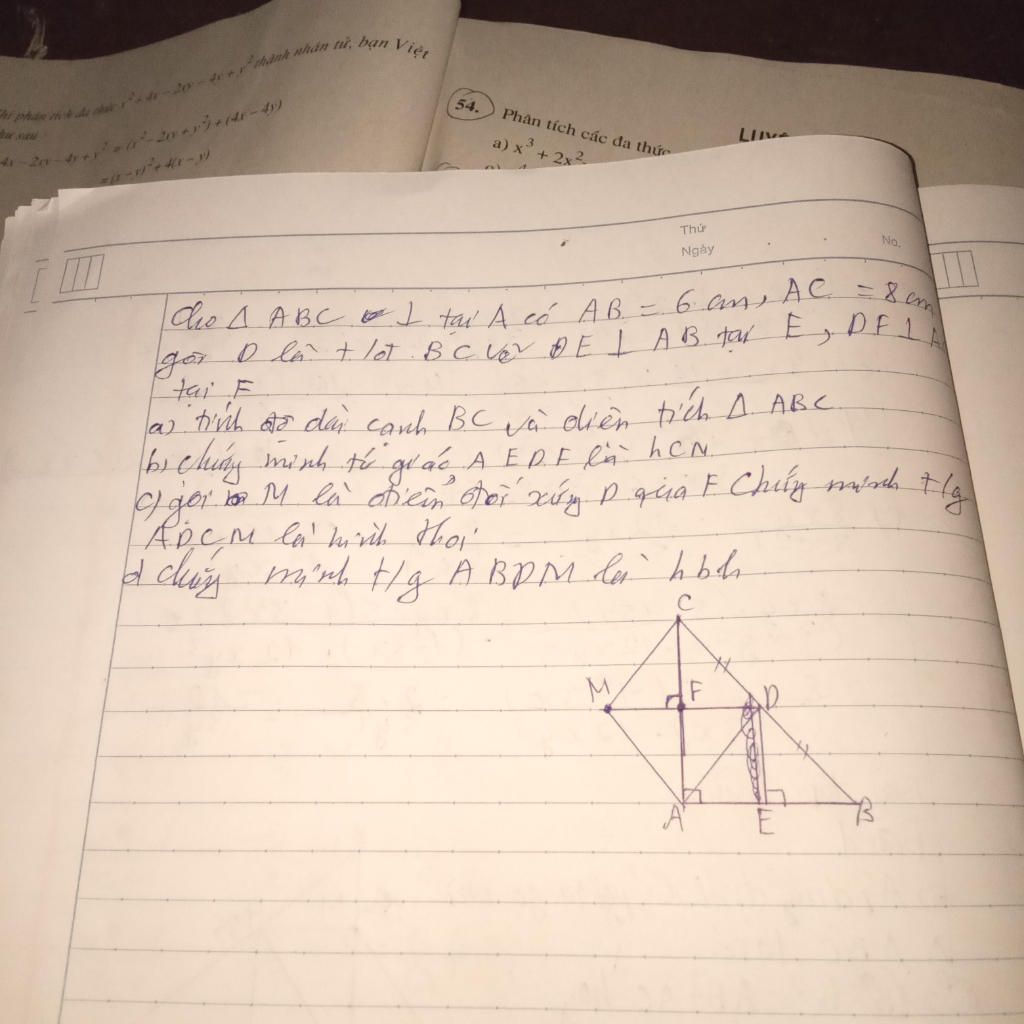 thành nhân tử, bạn Việt
phân tích đa thức x² + 4x – 2xy – 4y + y²
như sau
4x – 2xy – 4y + y² = (x² – 2xy + y²) + (4x – 4y)
= (x – y)² + 4(x – y)
54. Phân tích các đa thức
a) x³ + 2x²
Thứ
Ngày
No.
Cho Δ ABC ⊥ tại A có AB = 6 cm, AC = 8 cm
gọi D là t/đt BC vẽ DE ⊥ AB tại E, DF ⊥ A
tại F
a) tính độ dài cạnh BC và diện tích Δ ABC
b) chứng minh tứ giác AEDF là hCN
c) gọi M là điểm đối xứng D qua F Chứng minh t/g
ADCM là hình thoi
d chứng minh t/g ABDM là hbh
C
M F D
A E B